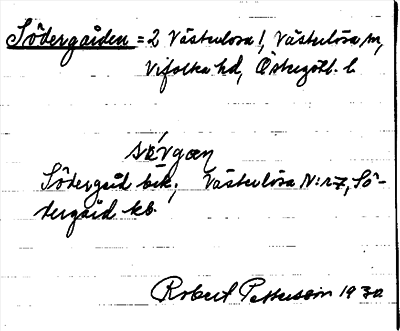 Södergården = 2 Västerlösa!, Västerlösa sn,
Vifolka hd, Östergötl. l.
Södergård bek., Västerlösa N:r 7, Sö-
dergård kb.
Robert Pettersson 1930